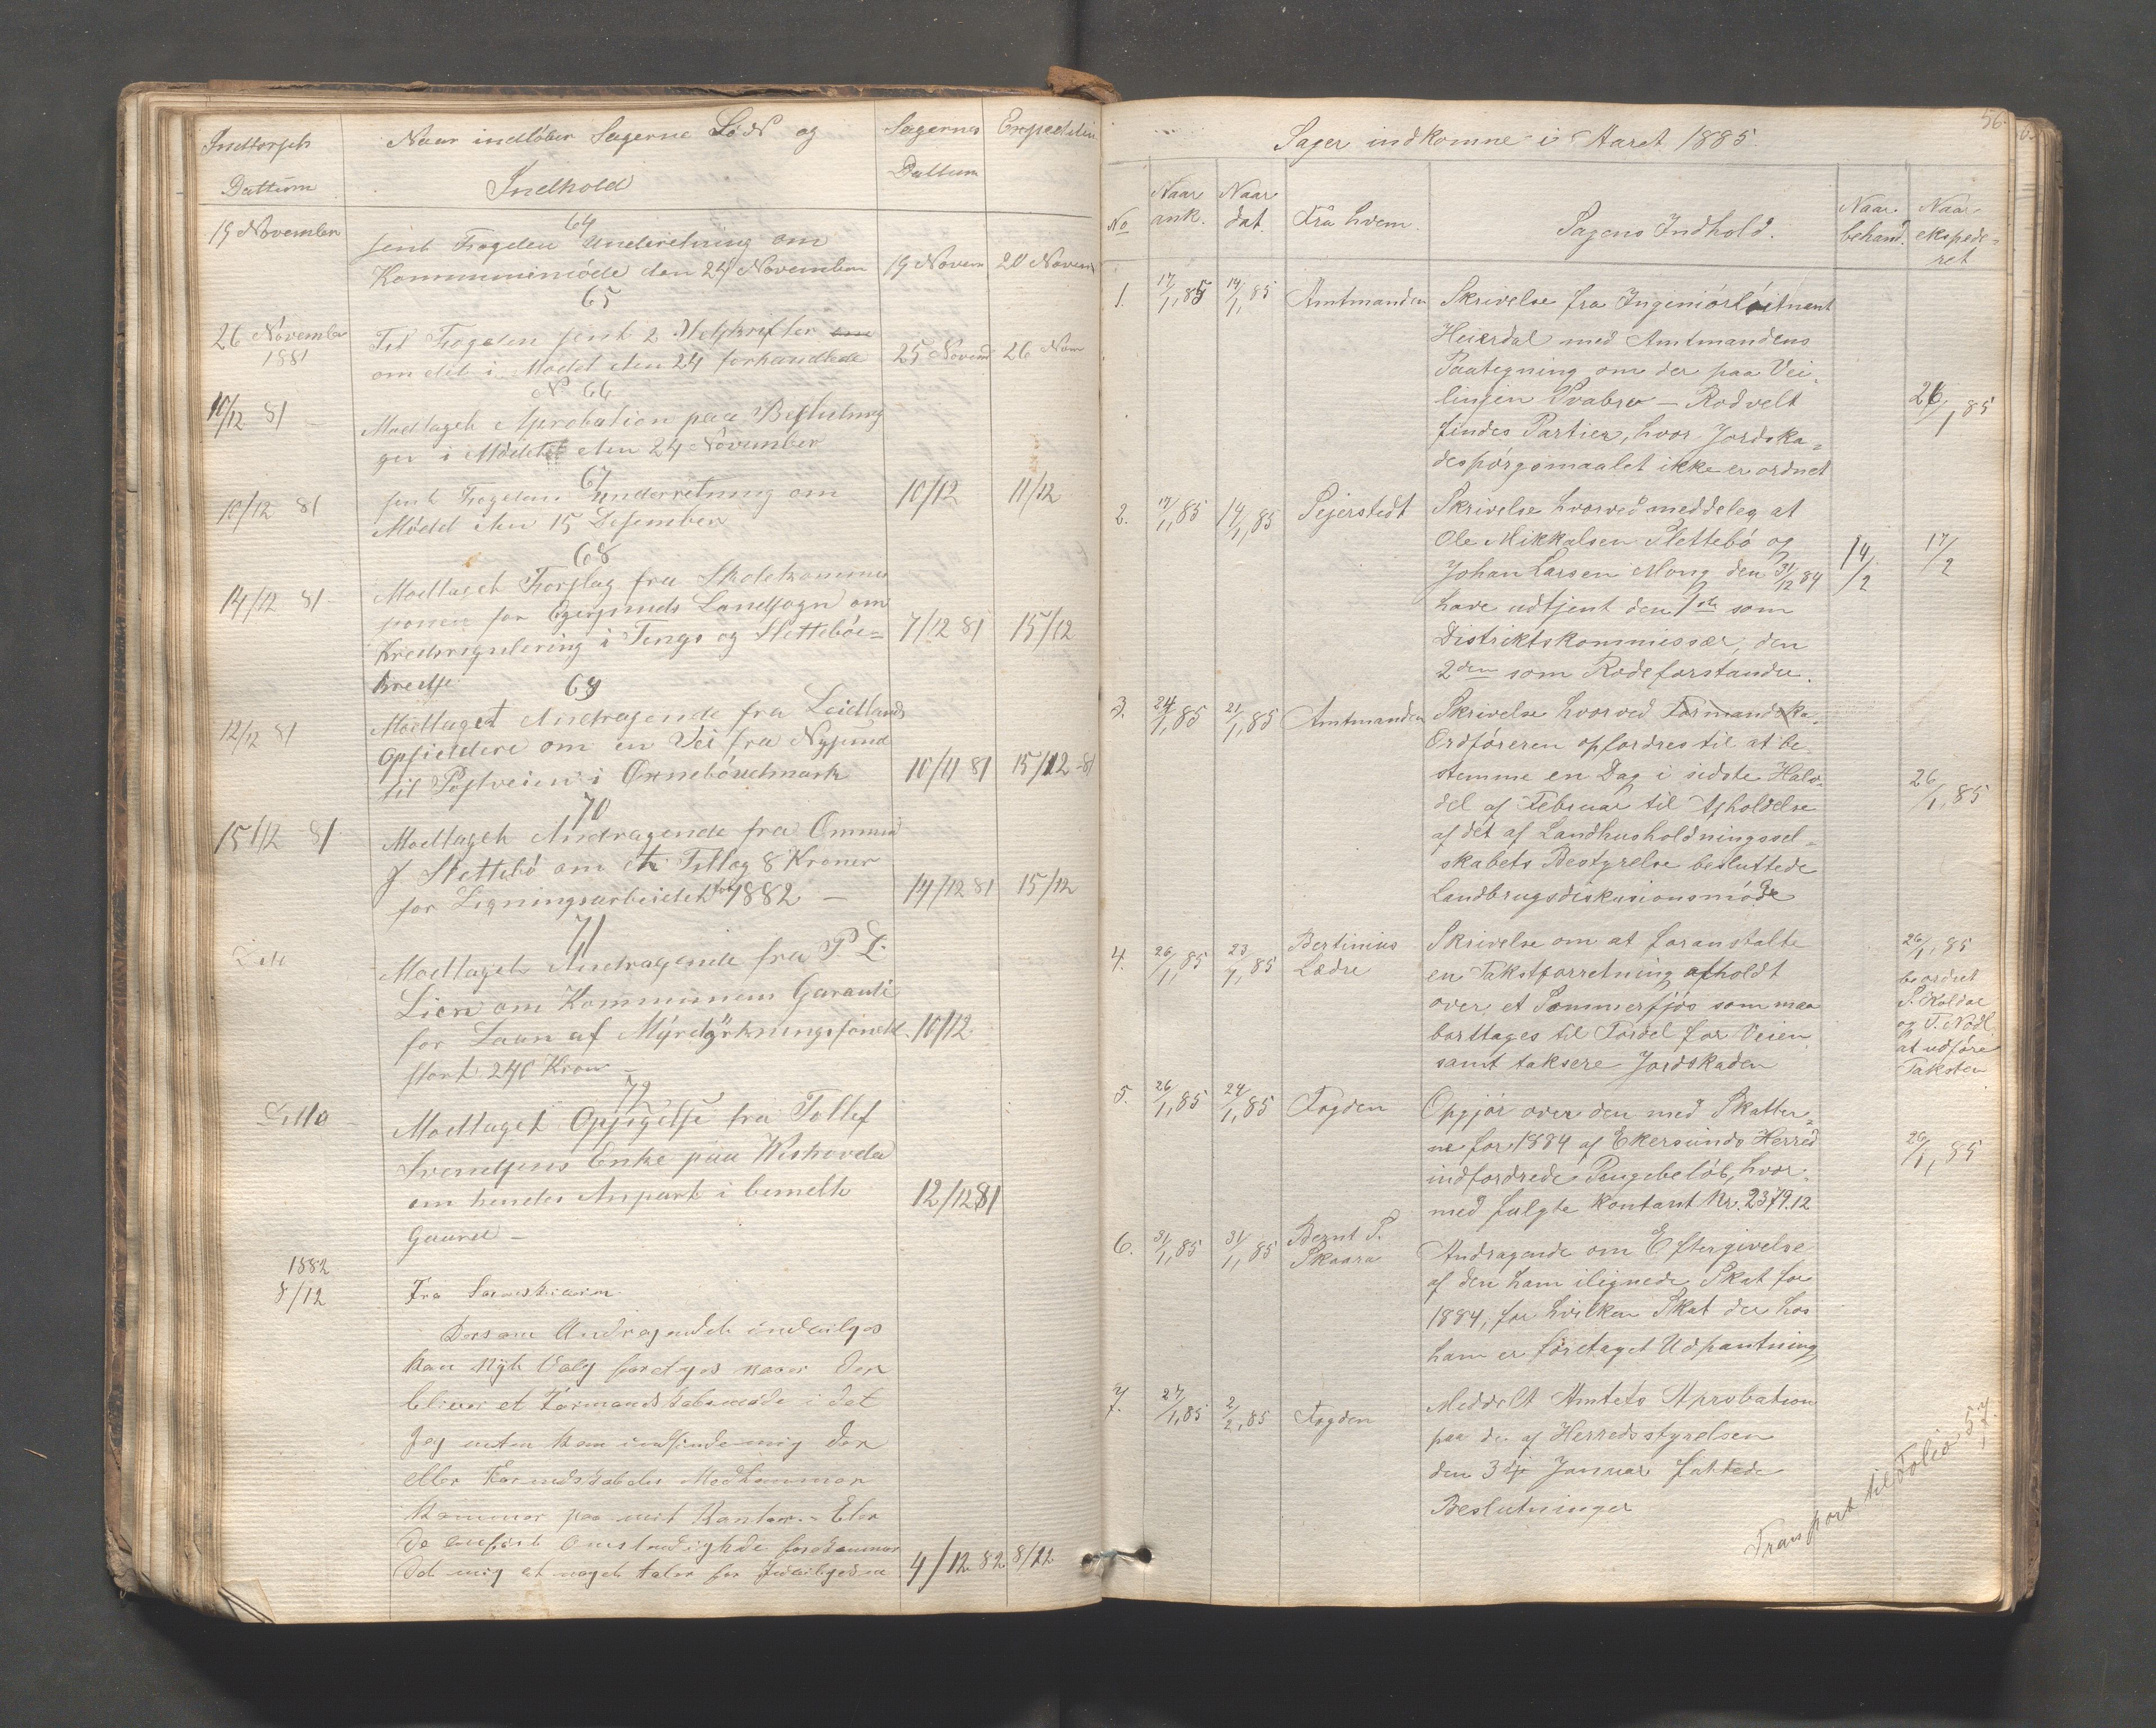 Indførsels Naar indløber Sagerne Lød og Sagernes Expedition
Dattum Indhold Dattum
64
19 November sent Fogden Underretning om
Kommunemøde den 24 November 19 Novem 20 Novem
65
26 November 1881 Til Fogden sent 2 Udskrifter
om det i Mødet den 24 forhandlede 25 Novem 26 Nov
No 66
10/12 81 Modtaget Aprobation paa Beslutning
ger i Mødet den 24 November
67
10/12 81 sent Fogden underretning om 10/12 11/12
Mødet den 15 Desember
68
14/12 81 Modtaget Forslag fra Skolekommis
sionen for Egersunds Landsogn om
Kredsregulering i Tengs og Slettebøe= 7/12 81 15/12
Kredse
69
12/12 81 Modtaget Andragende fra Leidlands
Opsiddere om en Vei fra Nysund
til Postveien i 10/11 81 15/12 81
70
15/12 81 Modtaget Andragende fra Ommund
J Slettebø om et Tillæg 8 Kroner
for Ligningsarbeidet for 1882 — 14/12 81 15/12
71
Dito Modtaget Andragende fra P L.
Lien om Kommunens Garanti
for Laan af Myrdyrkningsfondet 10/12
stort 240 Kron —
72
Ditto Modtaget Opsigelse fra Tollef
Svendsens Enke paa
om hendes Anpart i bemelte 12/12 81
Gaard —
1882
8/12 Fra
Dersom Andragendet indvilges
kan nyt Valg foretages naar der
bliver et Formandskabsmøde i det
Jeg enten kan indfinde mig der
eller Formandskabets Medlemmer
kommer paa mit Kontor. - Eter
de anførte Omstændighede forekommer
Det mig at noget taler for 4/12 82 8/12
56.
Sager indkomne i Aaret 1885.
No Naar ank. Naar dat. Fra hvem. Sagens Indhold. Naar behand. Naar ekspede-
ret
1. 17/1, 85 14/1, 85 Amtmanden Skrivelse fra Ingeniörlöitnant
Heierdal med Amtmandens
Paategning om der paa Vei-
linjen Svabrø — Rodvelt 26/1 85
findes Partier, hvor Jordska=
despörgsmaalet ikke er ordnet
2. 17/1, 85 14/1, 85 Sejerstedt Skrivelse hvorved meddeles at
Ole Mikkalsen Slettebö og
Johan Larsen Mong den 31/12 84 14/2 17/2
have udtjent den 1ste som
Distriktskommissær, den
2den som Rodeforstander.
3. 24/1, 85 21/1, 85 Amtmanden Skrivelse hvorved Formandska-
Ordföreren opfordres til at be-
stemme en Dag i sidste Halv-
del af Februar til Afholdelse 26/1, 85
af det af Landhusholdningssel=
skabets Bestyrelse besluttede
Landbrugsdiskusionsmöde
4. 26/1, 85 23/1, 85 Bertinius Skrivelse om at foranstalte 26/1, 85
Lædre en Takstforretning afholdt beordret
over et Sommerfjös som maa S. Koldal
borttages til Fordel for Veien og T. Nödl.
samt taksere Jordskaden at udføre
Taksten
5. 26/1, 85 24/1, 85 Fogden Opgjör over den med Skatter=
ne for 1884 af Ekersunds Herred 26/1, 85
indfordrede Pengebeløb, hvor-
med fulgte kontant Kr. 2379.12
6. 31/1, 85 31/1, 85 Bernt T. Andragende om Eftergivelse
Skaara af den ham ilignede Skat for
1884, for hvilken Skat der hos
ham er företaget Udpantning
7. 27/1, 85 2/2, 85 Fogden Meddelt Amtets Aprobation
paa de af Herredsstyrelsen
den 3dje Januar fattede
Beslutninger
Transport til Folio 57.